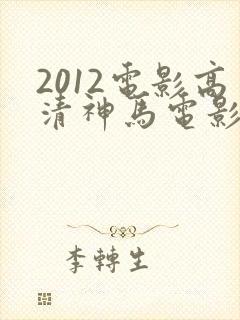 2012電影高
清神馬電影
李轉生